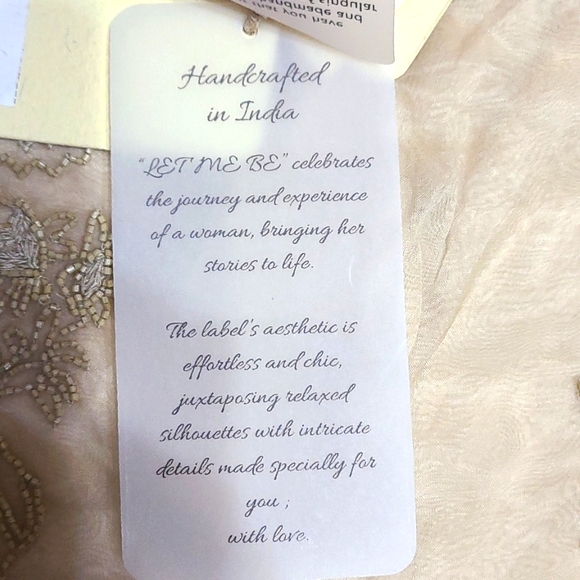 t that you have
andmade and
f singular
Handcrafted
in India
"LET ME BE" celebrates
the journey and experience
of a woman, bringing her
stories to life.
The label's aesthetic is
effortless and chic,
juxtaposing relaxed
silhouettes with intricate
details made specially for
you ;
with love.